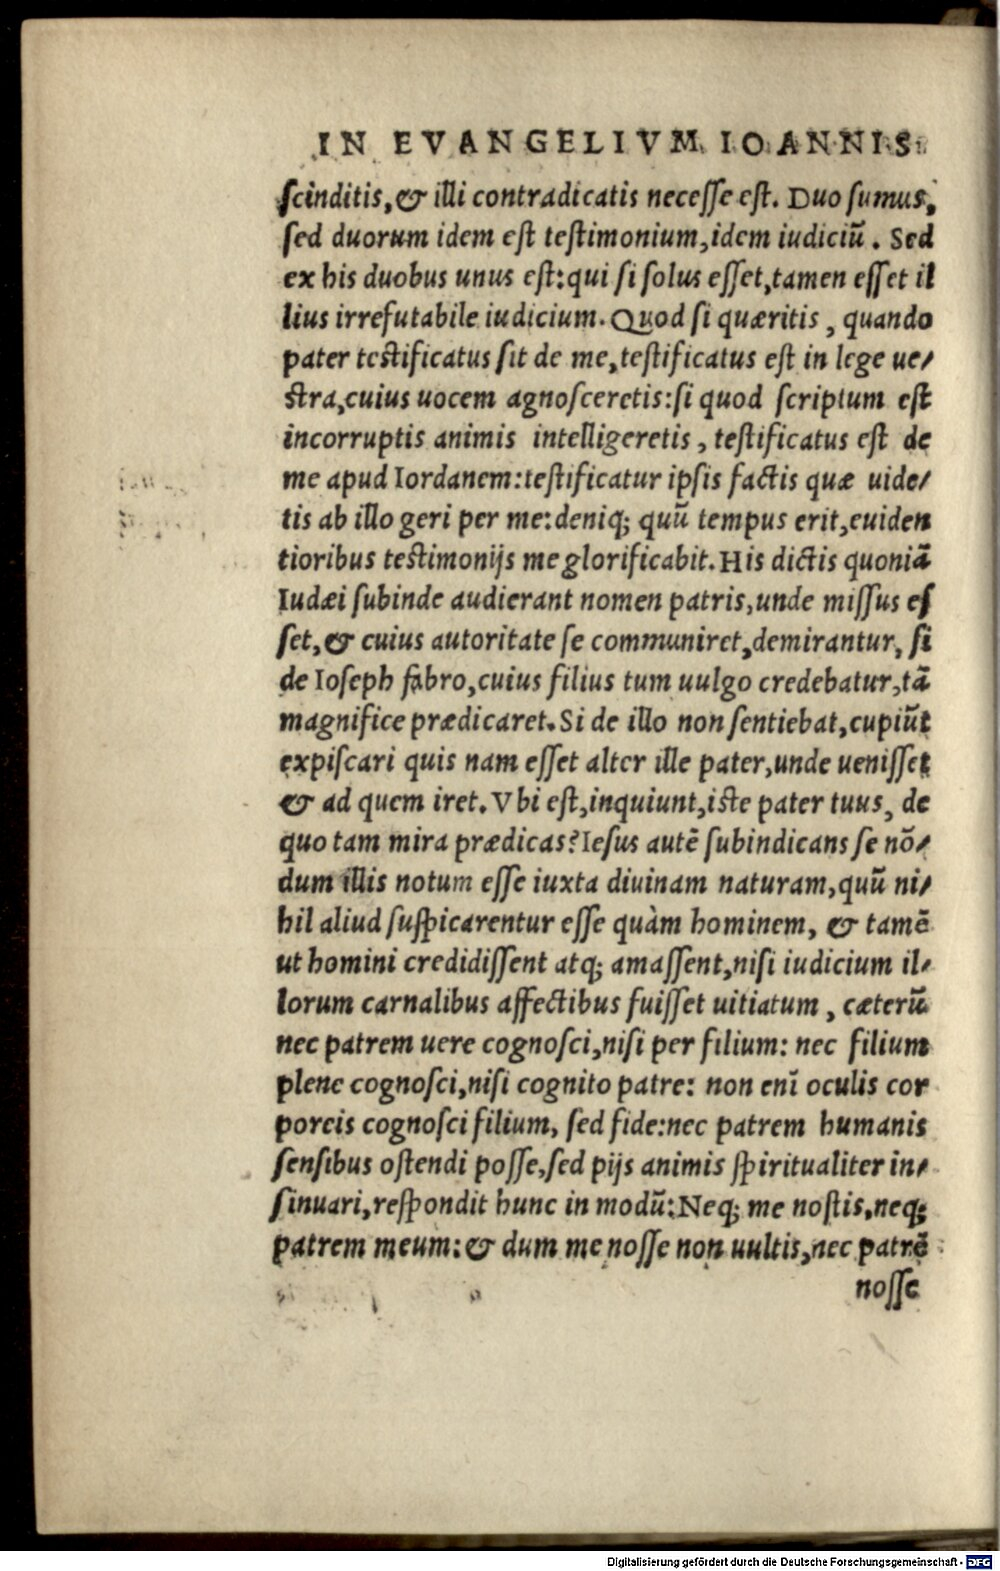 IN EVANGELIVM IOANNIS
scinditis, & illi contradicatis necesse est. Duo sumus,
sed duorum idem est testimonium, idem iudiciũ. Sed
ex his duobus unus est: qui si solus esset, tamen esset il
lius irrefutabile iudicium. Quod si quæritis, quando
pater testificatus sit de me, testificatus est in lege ue-
stra, cuius uocem agnosceretis: si quod scriptum est
incorruptis animis intelligeretis, testificatus est de
me apud Iordanem: testificatur ipsis factis quæ uide-
tis ab illo geri per me: deniq; quũ tempus erit, euiden
tioribus testimonijs me glorificabit. His dictis quoniã
Iudæi subinde audierant nomen patris, unde missus es
set, & cuius autoritate se communiret, demirantur, si
de Ioseph fabro, cuius filius tum uulgo credebatur, tã
magnifice prædicaret. Si de illo non sentiebat, cupiũt
expiscari quis nam esset alter ille pater, unde uenisset
& ad quem iret. Vbi est, inquiunt, iste pater tuus, de
quo tam mira prædicas? Iesus autẽ subindicans se nõ-
dum illis notum esse iuxta diuinam naturam, quũ ni-
hil aliud suspicarentur esse quàm hominem, & tamẽ
ut homini credidissent atq; amassent, nisi iudicium il-
lorum carnalibus affectibus fuisset uitiatum, cæterũ
nec patrem uere cognosci, nisi per filium: nec filium
plene cognosci, nisi cognito patre: non enĩ oculis cor
poreis cognosci filium, sed fide: nec patrem humanis
sensibus ostendi posse, sed pijs animis spiritualiter in-
sinuari, respondit hunc in modũ: Neq; me nostis, neq;
patrem meum: & dum me nosse non uultis, nec patrẽ
nosse
Digitalisierung gefördert durch die Deutsche Forschungsgemeinschaft - DFG